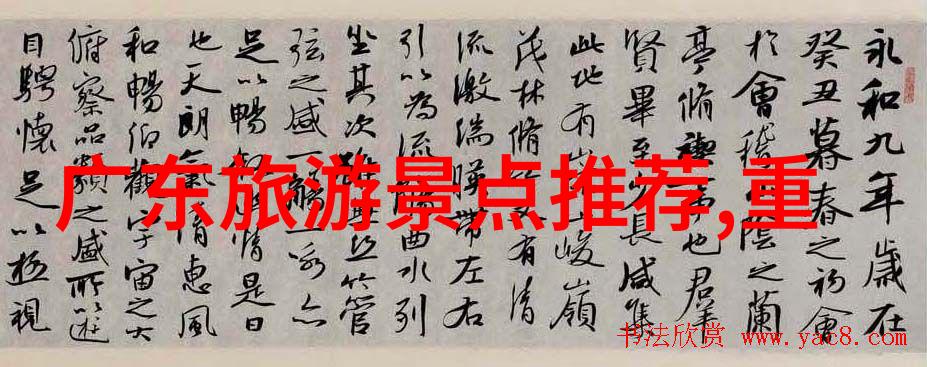 永和九年歲在
癸丑暮春之初會
於會稽陰之蘭
亭脩禊事也群
賢畢至少長咸集
此地有山峻嶺
茂林脩有清
流激湍暎帶左右
引以為流觴曲水列
坐其次雖無絲竹管
弦之盛一觴一詠亦
足以暢情是日
也天朗氣清惠風
和暢仰觀宇宙之大
俯察品類之盛所以遊
目騁懷足以極視
广东旅游景点推荐,重
书法欣赏 www.yac8.com